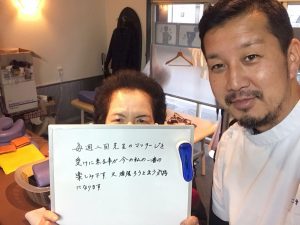 毎週二回先生のマッサージを
受けに来る事が今の私の一番の
楽しみです 又頑張ろうと言う気持
になります